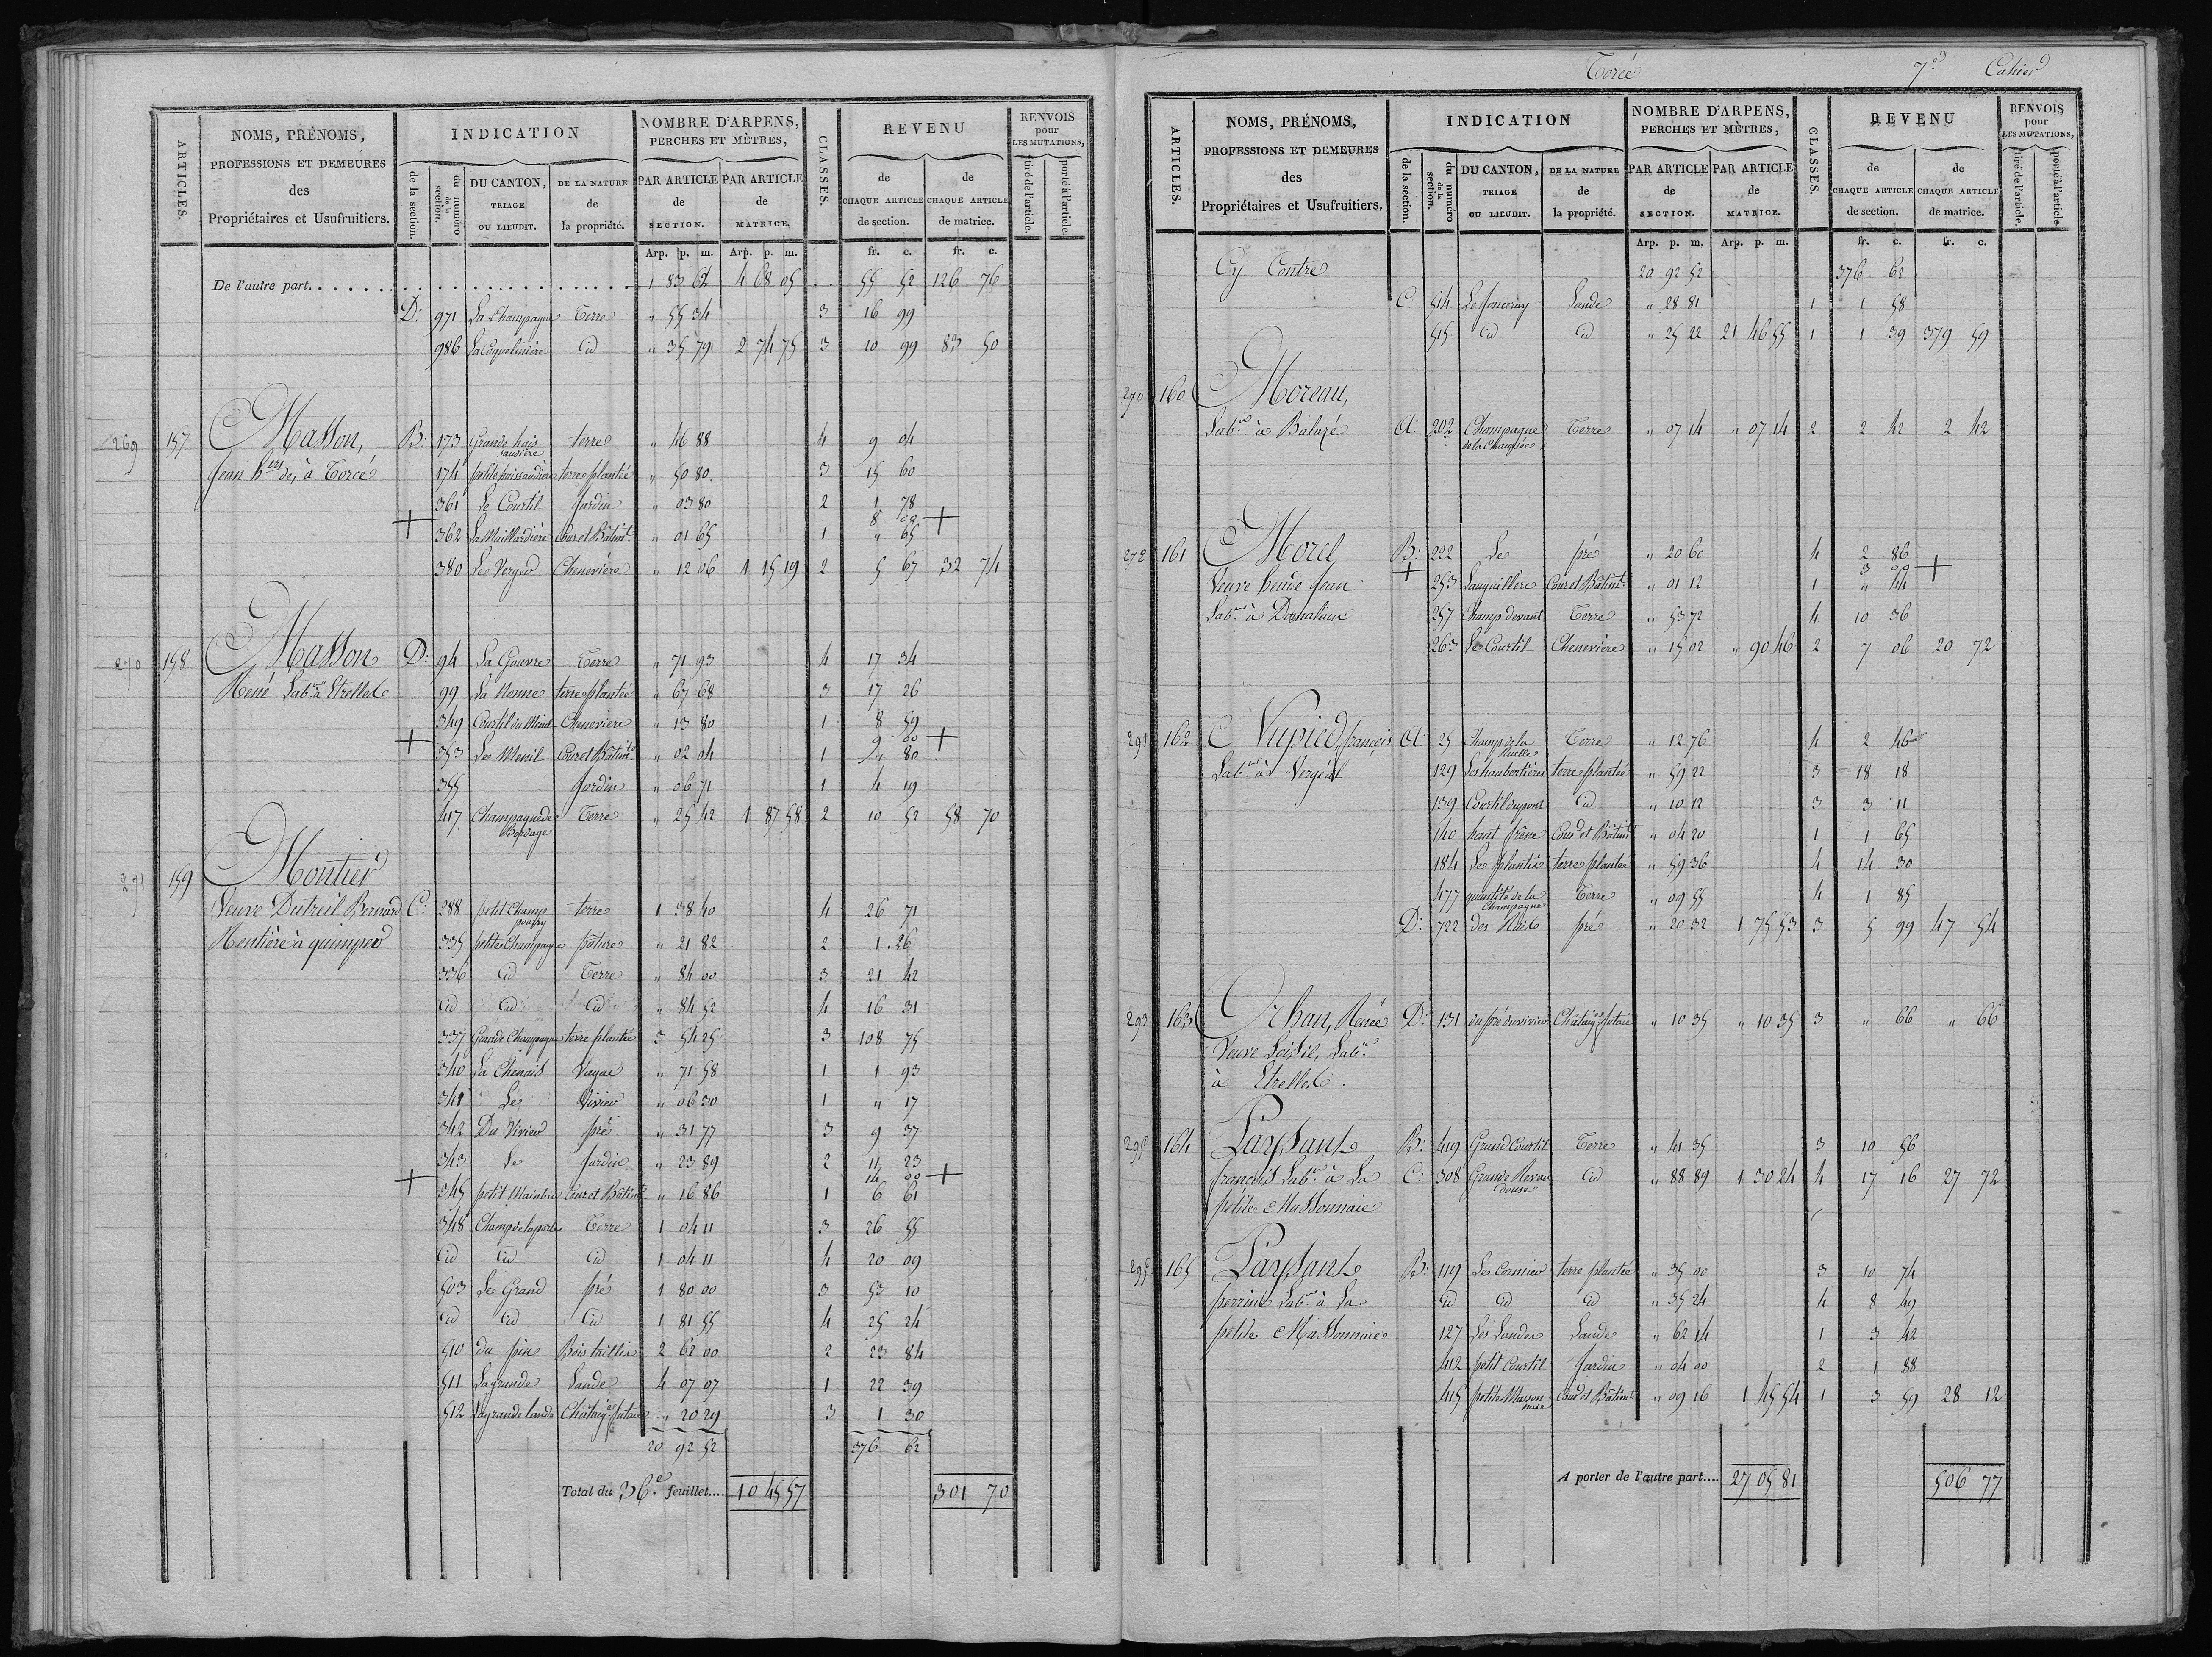 ARTICLES. | NOMS, PRÉNOMS, PROFESSIONS ET DEMEURES des Propriétaires et Usufruitiers. | INDICATION de la section. | du numéro de la section. | DU CANTON, TRIAGE OU LIEUDIT. | DE LA NATURE de la propriété. | NOMBRE D'ARPENS, PERCHES ET MÈTRES, PAR ARTICLE de SECTION. | PAR ARTICLE de MATRICE. | CLASSES. | REVENU de CHAQUE ARTICLE de section. | de CHAQUE ARTICLE de matrice. | RENVOIS pour LES MUTATIONS, tiré de l'article. | porté à l'article.
Arp. p. m. Arp. p. m. fr. c. fr. c.
De l'autre part. 1 83 62 4 68 05 55 52 126 76
D: 971 La Champagne Terre " 55 34 3 16 99
986 La Coquelinière id " 35 79 2 74 75 3 10 99 83 50
269 157 Masson, B: 173 Grande huis saudière terre " 46 88 4 9 04
Jean hers de, à Torcé 174 petite huissaudière terre plantée " 50 80 3 15 60
361 Le Courtil Jardin " 03 80 2 1 78
8 00
+ 362 La Maillardière Cour et Bâtimt. " 01 65 1 " 65 +
380 Le Verger Chenevière " 12 06 1 15 19 2 5 67 32 74
270 158 Masson D: 94 La Gouvre Terre " 71 93 4 17 34
René Labr. à Etrelles 99 La Nonne terre plantée " 67 68 3 17 26
349 Courtil du Menil Chenevière " 13 80 1 8 59
9 60
+ 353 Le Menil Cour et Bâtimt " 02 04 1 " 80 +
355 Jardin " 06 71 1 4 19
417 Champagne de Bordage Terre " 25 42 1 87 58 2 10 52 58 70
271 159 Montier
Veuve Dutreil Bernard C: 288 petit Champ pourry terre 1 38 40 4 26 71
Rentière à quimper 335 petite Champagne pâture " 21 82 2 1 26
336 id Terre " 84 00 3 21 42
id id id " 84 52 4 16 31
337 Grande Champagne terre plantée 3 54 25 3 108 75
340 La Chenais Vague " 71 58 1 1 93
341 Le Vivier " 06 30 1 " 17
342 Du Vivier pré " 31 77 3 9 37
343 Le Jardin " 23 89 2 11 23
14 00
+ 345 petit Maimbier Cour et Bâtimt " 16 86 1 6 61 +
348 Champ de la porte Terre 1 04 11 3 26 55
id id id 1 04 11 4 20 09
503 Le Grand pré 1 80 00 3 53 10
id id id 1 81 55 4 25 24
510 du pin Bois taillis 2 62 00 2 23 84
511 La grande Lande 4 07 07 1 22 39
512 La grande lande Châtaigers futaie " 20 29 3 1 30
20 92 52 376 62
Total du 36e. feuillet.... 10 45 57 301 70
Torcé 7e. Cahier
ARTICLES. | NOMS, PRÉNOMS, PROFESSIONS ET DEMEURES des Propriétaires et Usufruitiers. | INDICATION de la section. | du numéro de la section. | DU CANTON, TRIAGE OU LIEUDIT. | DE LA NATURE de la propriété. | NOMBRE D'ARPENS, PERCHES ET MÈTRES, PAR ARTICLE de SECTION. | PAR ARTICLE de MATRICE. | CLASSES. | REVENU de CHAQUE ARTICLE de section. | de CHAQUE ARTICLE de matrice. | RENVOIS pour LES MUTATIONS, tiré de l'article. | porté à l'article
Arp. p. m. Arp. p. m. fr. c. fr. c.
Cy Contre 20 92 52 376 62
C 514 Le Joncray Lande " 28 81 1 1 58
515 id id " 25 22 21 46 55 1 1 39 379 59
270 160 Moreau,
Labr. à Balazé A: 202 Champagne de la Chaussée Terre " 07 14 " 07 14 2 2 42 2 42
272 161 Morel B: 222 Le pré " 20 60 4 2 86
3 00
Veuve heude Jean + 253 Languillère Cour et Bâtimt. " 01 12 1 " 44 +
Labr. à Domalain 257 Champ devant Terre " 53 72 4 10 36
263 Le Courtil Chenevière " 15 02 " 90 46 2 7 06 20 72
291 162 Nupied, françois A: 25 Champ de la ruelle Terre " 12 76 4 2 46
Labr. à Vergéal 129 Les haubertières terre plantée " 59 22 3 18 18
139 Courtil du pont id " 10 12 3 3 11
140 haut frêne Cour et Bâtimt " 04 20 1 1 65
184 Le plantis terre plantée " 59 36 4 14 30
477 quantité de la Champagne Terre " 09 55 4 1 85
D: 722 des Noës pré " 20 32 1 75 53 3 5 99 47 54
293 163 Orhan, Renée D: 131 du pré du vivier Châtaigers futaie " 10 35 " 10 35 3 " 66 " 66
Veuve Loisil, Labr.
à Etrelles.
295 164 Paysant B: 419 Grand Courtil Terre " 41 35 3 10 56
françois Labr. à La C: 308 Grande Revaudouse id " 88 89 1 30 24 4 17 16 27 72
petite Massonnaie
295 165 Paysant B: 119 Le Cormier terre plantée " 35 00 3 10 74
perrine Labr. à La id id id " 35 24 4 8 49
petite Massonnaie 127 Les Landes Lande " 62 14 1 3 42
412 petit Courtil Jardin " 04 00 2 1 88
415 petite Masson naie Cour et Bâtimt " 09 16 1 45 54 1 3 59 28 12
A porter de l'autre part.... 27 05 81 506 77